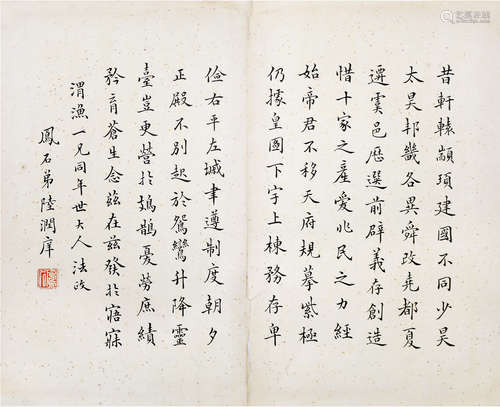 昔軒轅顓頊建國不同少昊
太昊邦畿各異舜改堯都夏
遷虞邑厯選前辟義存創造
惜十家之產愛兆民之力經
始帝君不移天府規摹紫極
仍據皇圖下宇上棟務存卑
儉右平左墄聿遵制度朝夕
正殿不別起於鴛鸞升降靈
臺豈更營於鳷鵲憂勞庶績
矜育蒼生念茲在茲發於寤寐
渭漁一兄同年世大人法政
鳳石弟陸潤庠